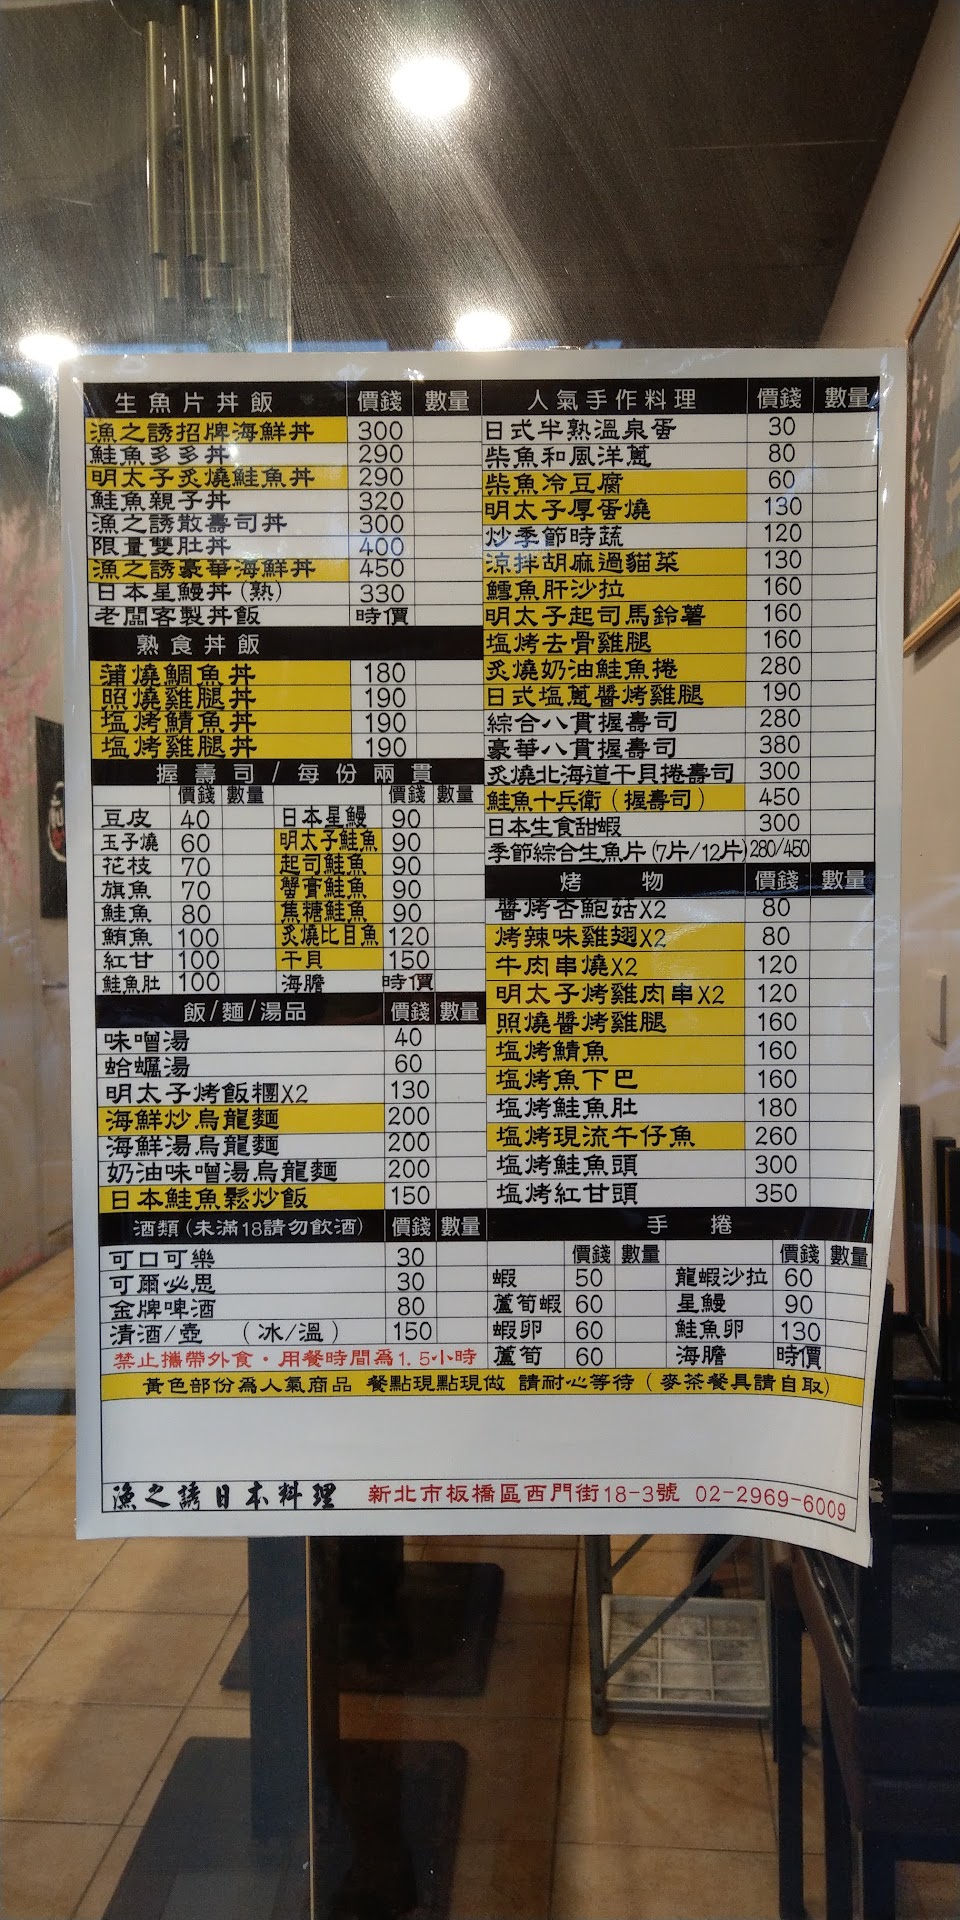 生魚片丼飯 價錢 數量
漁之誘招牌海鮮丼 300
鮭魚多多丼 290
明太子炙燒鮭魚丼 290
鮭魚親子丼 320
漁之誘散壽司丼 300
限量雙肚丼 400
漁之誘豪華海鮮丼 450
日本星鰻丼(熟) 330
老闆客製丼飯 時價
熟食丼飯
蒲燒鯛魚丼 180
照燒雞腿丼 190
塩烤鯖魚丼 190
塩烤雞腿丼 190
握壽司/每份兩貫
價錢 數量 價錢 數量
豆皮 40 日本星鰻 90
玉子燒 60 明太子鮭魚 90
花枝 70 起司鮭魚 90
旗魚 70 蟹膏鮭魚 90
鮭魚 80 焦糖鮭魚 90
鮪魚 100 炙燒比目魚 120
紅甘 100 干貝 150
鮭魚肚 100 海膽 時價
飯/麵/湯品 價錢 數量
味噌湯 40
蛤蠣湯 60
明太子烤飯糰X2 130
海鮮炒烏龍麵 200
海鮮湯烏龍麵 200
奶油味噌湯烏龍麵 200
日本鮭魚鬆炒飯 150
酒類(未滿18請勿飲酒) 價錢 數量
可口可樂 30
可爾必思 30
金牌啤酒 80
清酒/壺 (冰/溫) 150
禁止攜帶外食·用餐時間為1.5小時
人氣手作料理 價錢 數量
日式半熟溫泉蛋 30
柴魚和風洋蔥 80
柴魚冷豆腐 60
明太子厚蛋燒 130
炒季節時蔬 120
涼拌胡麻過貓菜 130
鱈魚肝沙拉 160
明太子起司馬鈴薯 160
塩烤去骨雞腿 160
炙燒奶油鮭魚捲 280
日式塩蔥醬烤雞腿 190
綜合八貫握壽司 280
豪華八貫握壽司 380
炙燒北海道干貝捲壽司 300
鮭魚十兵衛(握壽司) 450
日本生食甜蝦 300
季節綜合生魚片(7片/12片) 280/450
烤物 價錢 數量
醬烤杏鮑菇X2 80
烤辣味雞翅X2 80
牛肉串燒X2 120
明太子烤雞肉串X2 120
照燒醬烤雞腿 160
塩烤鯖魚 160
塩烤魚下巴 160
塩烤鮭魚肚 180
塩烤現流午仔魚 260
塩烤鮭魚頭 300
塩烤紅甘頭 350
手捲
價錢 數量 價錢 數量
蝦 50 龍蝦沙拉 60
蘆筍蝦 60 星鰻 90
蝦卵 60 鮭魚卵 130
蘆筍 60 海膽 時價
黃色部份為人氣商品 餐點現點現做 請耐心等待(麥茶餐具請自取)
漁之誘日本料理 新北市板橋區西門街18-3號 02-2969-6009